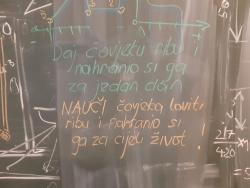 Daj čovjeku ribu i
nahranio si ga
za jedan dan
NAUČI čovjeka loviti
ribu i nahranio si
ga za cijeli život !
217
420